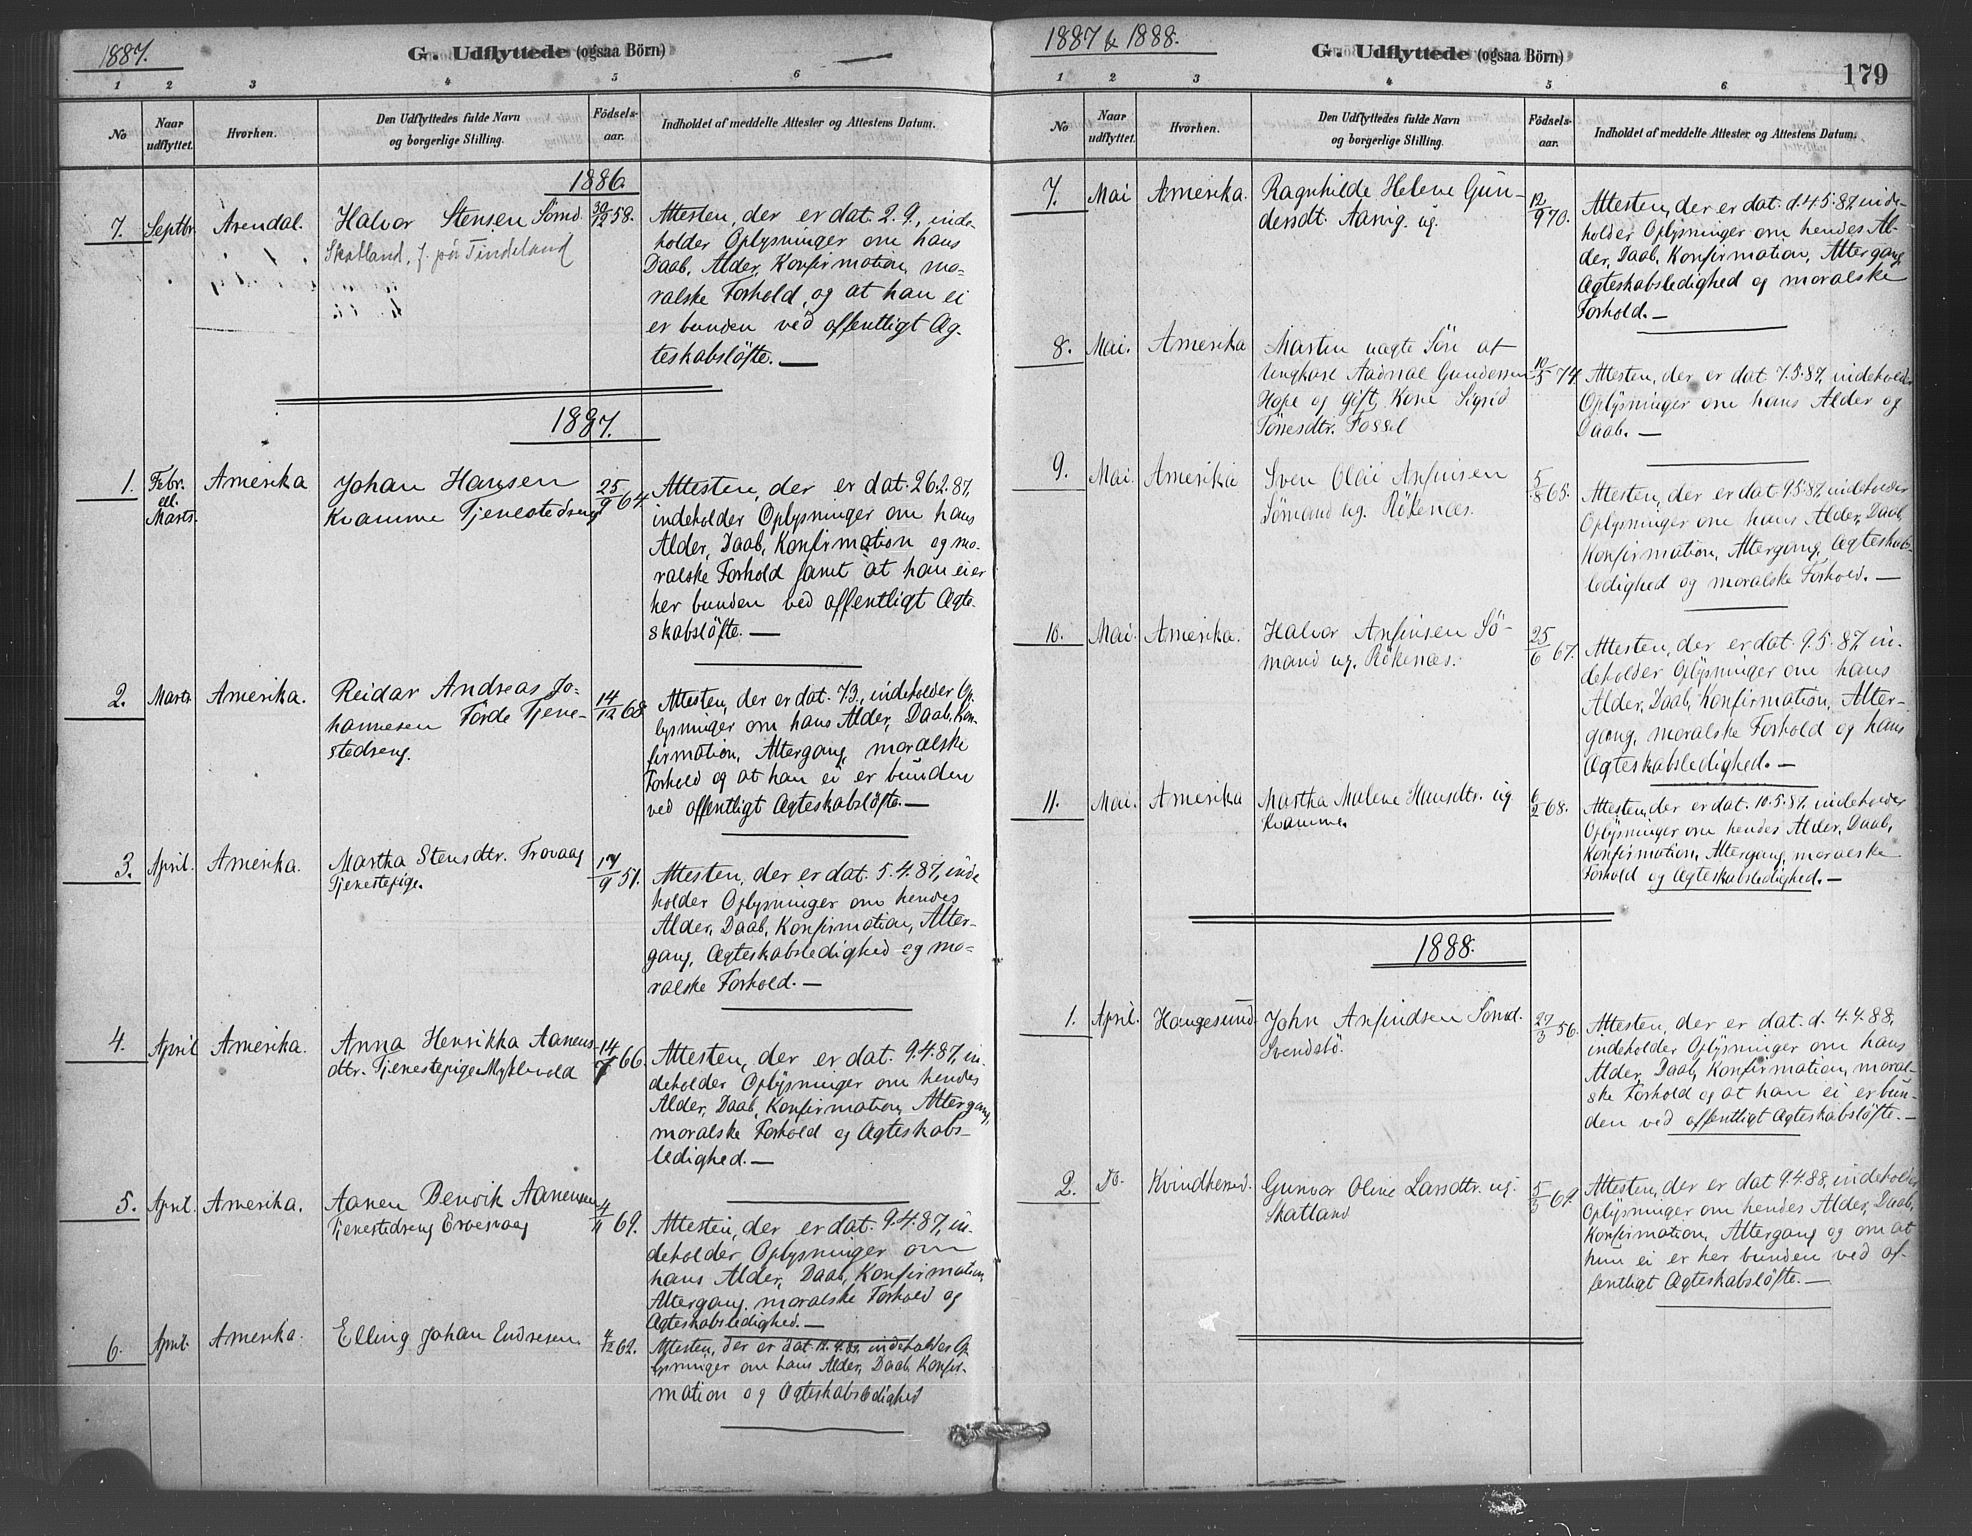 1887.
G. Udflyttede (ogsaa Börn)
1 2 3 4 5 6
No
Naar udflyttet.
Hvorhen.
Den Udflyttedes fulde Navn
og borgerlige Stilling.
Födsels-
aar.
Indholdet af meddelte Attester og Attestens Datum.
1886.
7. Septbr. Arendal. Halvor Stensen Sömd. 30/12 58.
Skatland, f. på Tindeland
Attesten, der er dat. 2.9, inde-
holder Oplysninger om hans
Daab, Alder, Konfirmation, mo-
ralske Forhold, og at han ei
er bunden ved offentligt Æg-
teskabsløfte. —
1887.
1. Febr. el. Marts. Amerika Johan Hansen 25/9 64.
Kvamme Tjenestedreng
Attesten, der er dat. 26.2.87,
indeholder Oplysninger om hans
Alder, Daab, Konfirmation og mo-
ralske Forhold samt at han ei er
her bunden ved offentligt Ægte-
skabsløfte. —
2. Marts Amerika. Reidar Andreas Jo- 14/12 68
hannesen Förde Tjene-
stedreng.
Attesten, der er dat. 7.3., indeholder Op-
lysninger om hans Alder, Daab, Kon-
firmation, Altergang, moralske
Forhold og at han ei er bunden
ved offentligt Ægteskabsløfte. —
3. April. Amerika. Martha Stensdtr. Trovaag 17/9 51.
Tjenestepige.
Attesten, der er dat. 5.4.87, inde
holder Oplysninger om hendes
Alder, Daab, Konfirmation, Alter-
gang, Ægteskabsledighed og mo-
ralske Forhold. —
4. April Amerika. Anna Henrikka Aanens- 14/7 66.
dtr. Tjenestepige Myklevold
Attesten, der er dat. 9.4.87, in-
deholder Oplysninger om hendes
Alder, Daab, Konfirmation, Altergang,
moralske Forhold og Ægteskabs-
ledighed. —
5. April. Amerika. Aanen Benvik Aanensen 4/11 69.
Tjenestedreng Ervesvaag
Attesten, der er dat. 9.4.87, in-
deholder Oplysninger om
hans Alder, Daab, Konfirmation,
Altergang, moralske Forhold og
Ægteskabsledighed. —
6. April. Amerika. Elling Johan Endresen 4/12 62.
Attesten, der er dat. indeholder Op-
lysninger om hans Alder, Daab, Konfir-
mation og Ægteskabsledighed
1887 & 1888.
G. Udflyttede (ogsaa Börn)
179
1 2 3 4 5 6
No
Naar
udflyttet.
Hvorhen.
Den Udflyttedes fulde Navn
og borgerlige Stilling.
Födsels-
aar.
Indholdet af meddelte Attester og Attestens Datum.
7. Mai Amerika. Ragnhilde Helene Gun- 12/9 70.
dersdt. Aarvig. ug.
Attesten, der er dat. d. 4.5.87, inde-
holder Oplysninger om hendes Al-
der, Daab, Konfirmation, Altergang,
Ægteskabsledighed og moralske
Forhold. —
8. Mai. Amerika Martin uægte Søn af 10/5 74.
Ungkarl Aadnsal Gundersen
Hope og gift Kone Sigrid
Tørresdtr. Fossel
Attesten, der er dat 7.5.87, indeholder
Oplysninger om hans Alder og
Daab. —
9. Mai Amerika Sven Olai Anfinsen 5/8 65.
Sömand ug. Rökenæs.
Attesten, der er dat 9.5.87, indeholder
Oplysninger om hans Alder, Daab,
Konfirmation, Altergang, Ægteskabs-
ledighed og moralske Forhold. —
10. Mai. Amerika. Halvor Anfinsen Sö- 25/6 67.
mand ug. Rökenæs.
Attesten, der er dat. 9.5.87, in-
deholder Oplysninger om hans
Alder, Daab, Konfirmation, Alter-
gang, moralske Forhold og hans
Ægteskabsledighed. —
11. Mai. Amerika Martha Malene Hansdtr. ug 6/2 68.
Kvamme.
Attesten, der er dat. 10.5.87, indeholder
Oplysninger om hendes Alder, Daab,
Konfirmation, Altergang, moralske
Forhold og Ægteskabsledighed. —
1888.
1. April. Haugesund. John Anfindsen Sömd. 27/3 56.
Svendsbö.
Attesten, der er dat. d. 4.4.88,
indeholder Oplysninger om hans
Alder, Daab, Konfirmation, moral-
ske Forhold og at han ei er bun-
den ved offentligt Ægteskabsløfte. —
2. Do. Kvindherred. Gunvor Oline Larsdtr. ug. 5/5 69.
Skatland
Attesten, der er dat 9.4.88, indeholder
Oplysninger om hendes Alder, Daab,
Konfirmation, Altergang og om at
hun ei er her bunden ved of-
fentligt Ægteskabsløfte. —